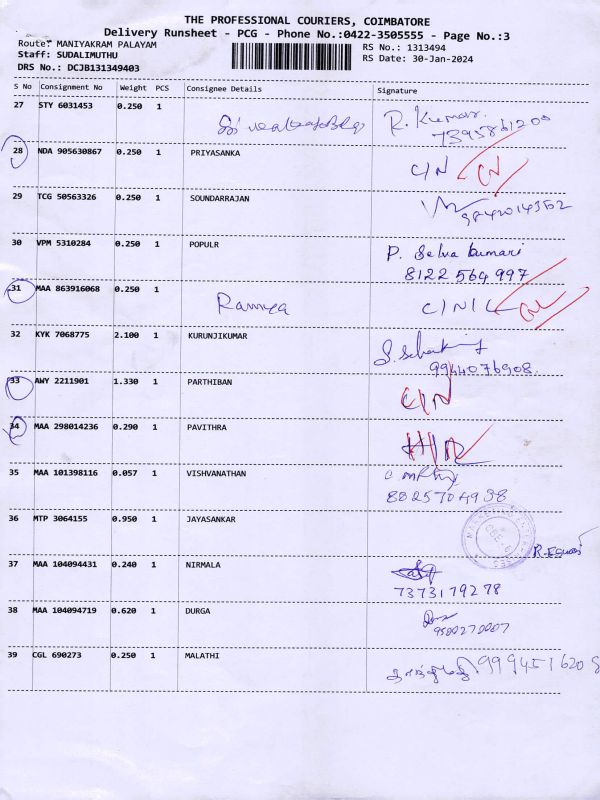 THE PROFESSIONAL COURIERS, COIMBATORE
Delivery Runsheet - PCG - Phone No.:0422-3505555 - Page No.:3
Route: MANIYAKRAM PALAYAM
Staff: SUDALIMUTHU
DRS No.: DCJB131349403
RS No.: 1313494
RS Date: 30-Jan-2024
S No Consignment No Weight PCS Consignee Details Signature
27 STY 6031453 0.250 1 R. Kumar.
7395861200
28 NDA 905630867 0.250 1 PRIYASANKA C/N CN
29 TCG 50563326 0.250 1 SOUNDARRAJAN
9842014352
30 VPM 5310284 0.250 1 POPULR P. Selva kumari
8122 564 997
31 MAA 863916068 0.250 1 Ramya C/N/L
32 KYK 7068775 2.100 1 KURUNJIKUMAR
9944076908.
33 AWY 2211901 1.330 1 PARTHIBAN C/N
34 MAA 298014236 0.290 1 PAVITHRA
35 MAA 101398116 0.057 1 VISHVANATHAN
8825704938
36 MTP 3064155 0.950 1 JAYASANKAR
37 MAA 104094431 0.240 1 NIRMALA
7373179278
38 MAA 104094719 0.620 1 DURGA
9500270007
39 CGL 690273 0.250 1 MALATHI 9994516208